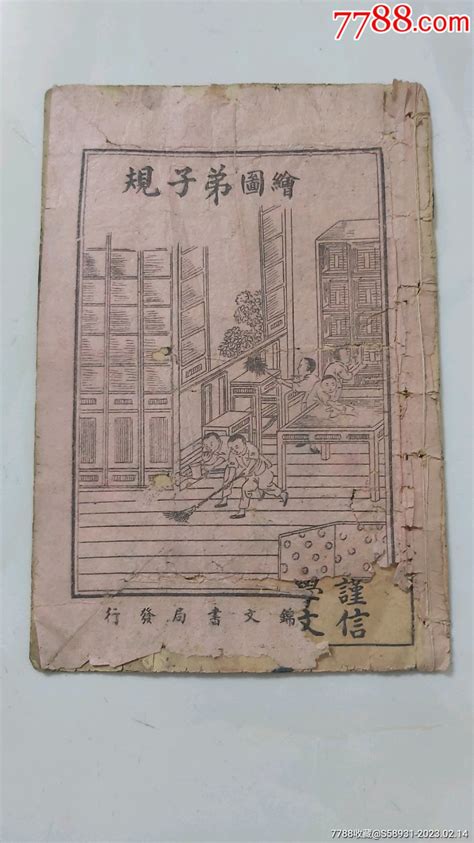 7788.com
繪圖弟子規
謹信
學文
錦文書局發行
7788收藏@S58931-2023.02.14